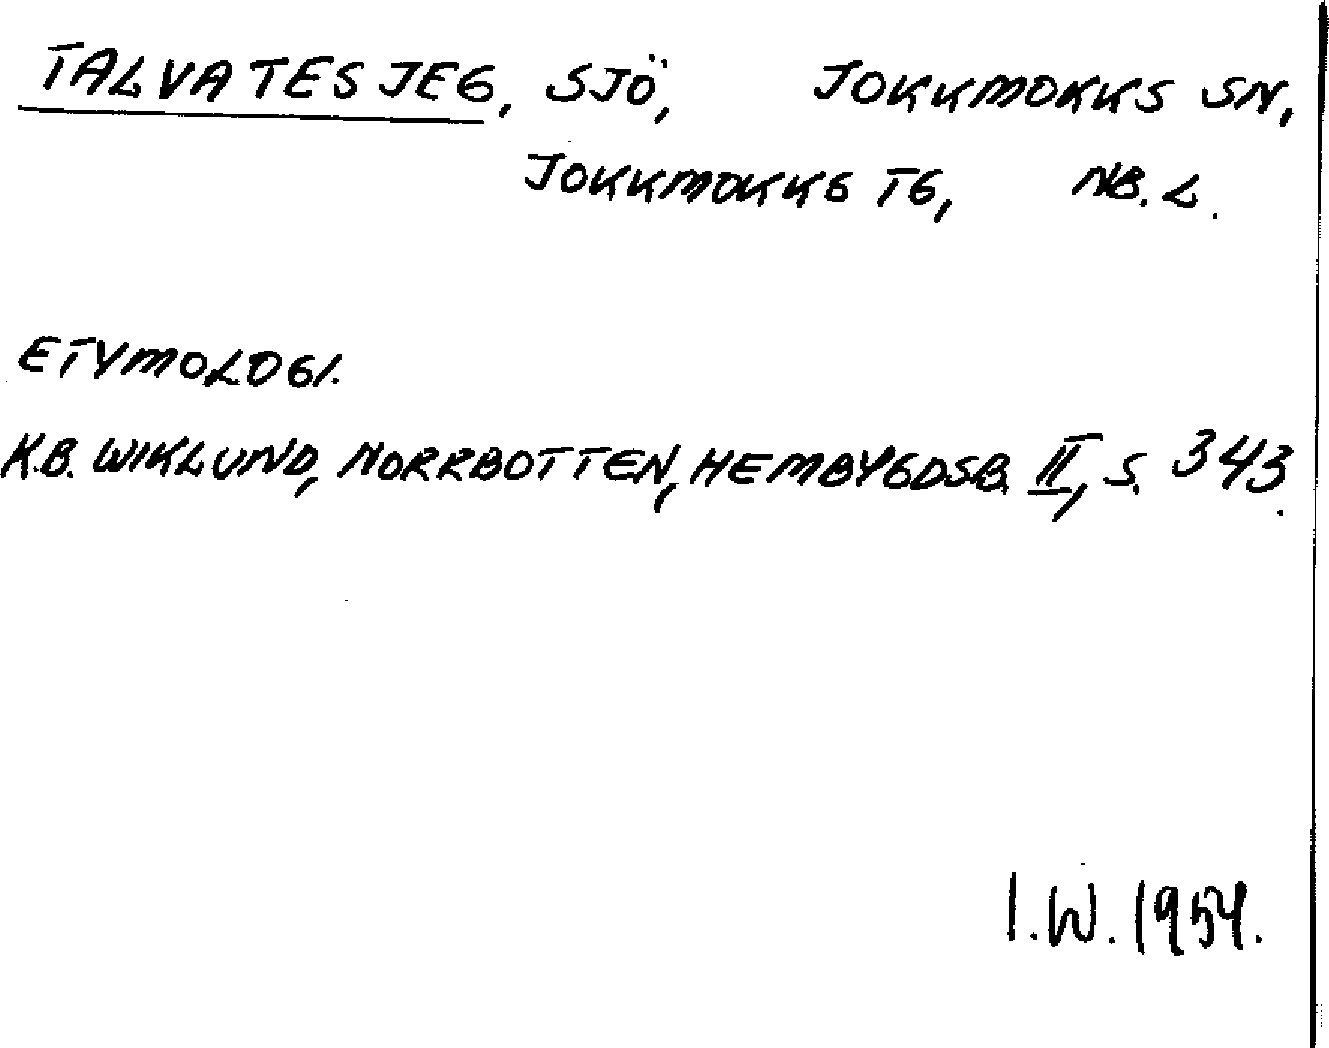 TALVATESJEG, SJÖ, JOKKMOKKS SN,
JOKKMOKKS TG, NB. L.
ETYMOLOGI.
K.B. WIKLUND, NORRBOTTEN, HEMBYGDSB. II, S. 343.
I.W. 1954.